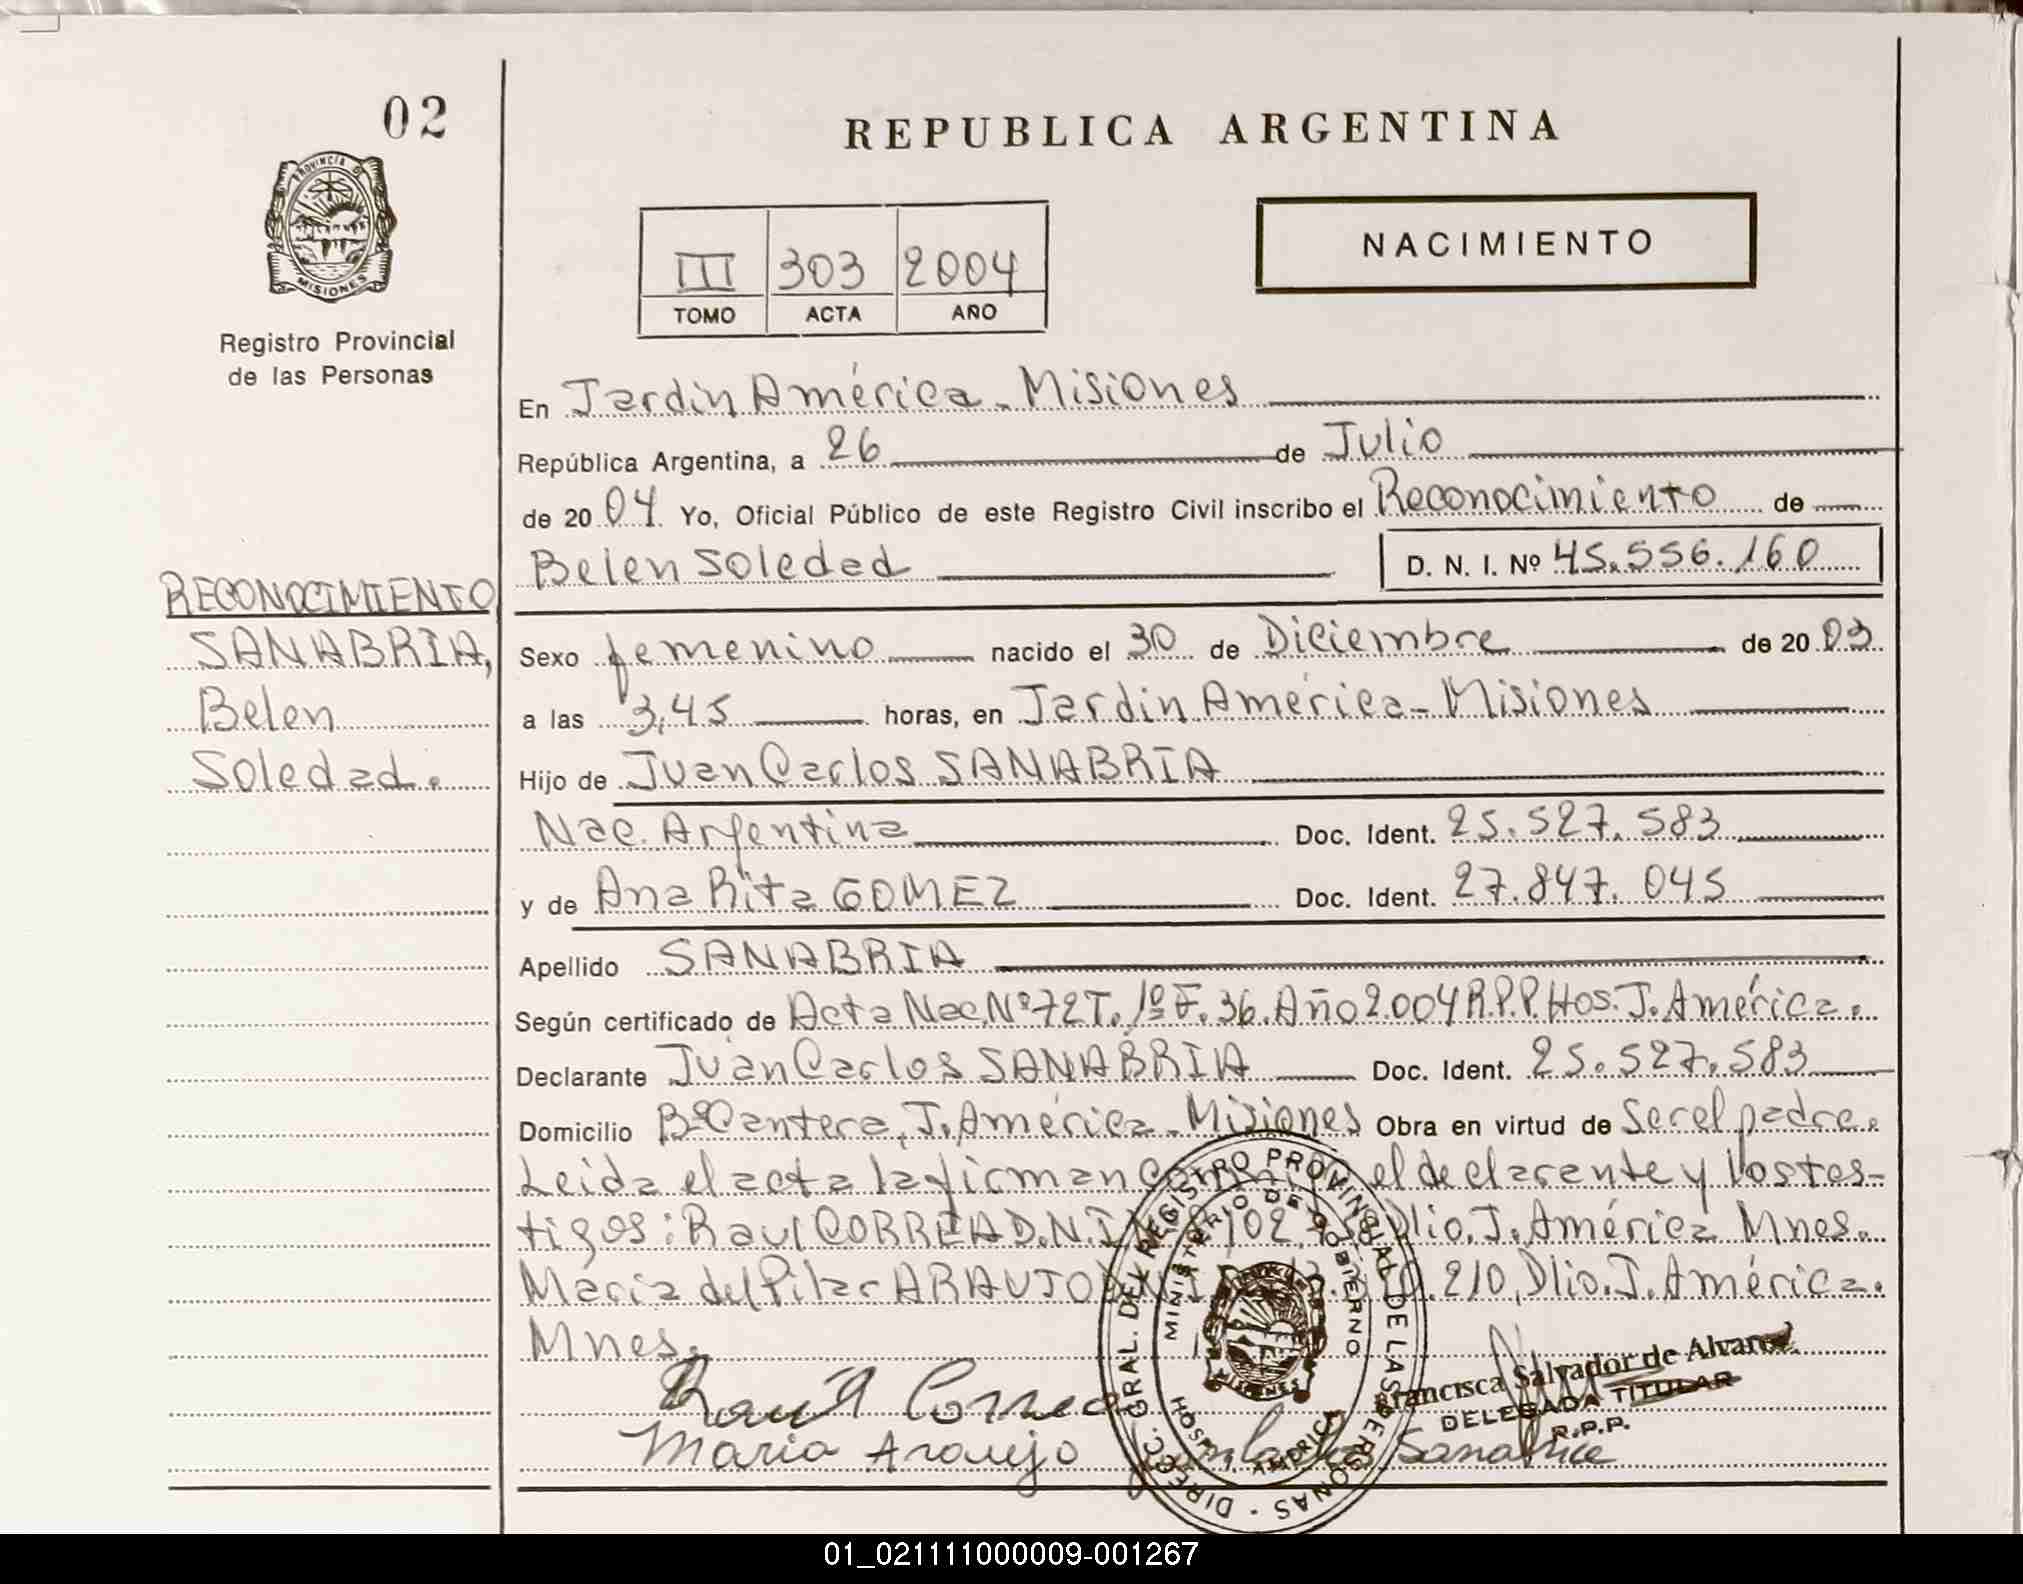 02
REPUBLICA ARGENTINA
PROVINCIA DE
MISIONES
Registro Provincial
de las Personas
III 303 2004
TOMO ACTA AÑO
NACIMIENTO
En Jardin América - Misiones
República Argentina, a 26 de Julio
de 2004 Yo, Oficial Público de este Registro Civil inscribo el Reconocimiento de
Belen Soledad D. N. I. Nº 45.556.160
RECONOCIMIENTO
SANABRIA,
Belen
Soledad.
Sexo femenino nacido el 30 de Diciembre de 2003
a las 3,45 horas, en Jardin América - Misiones
Hijo de Juan Carlos SANABRIA
Nac. Argentina Doc. Ident. 25.527.583
y de Ana Rita GOMEZ Doc. Ident. 27.847.045
Apellido SANABRIA
Según certificado de Acta Nac. Nº 72 T. 1º F. 36. Año 2.004 R.P.P. Hos. J. América.
Declarante Juan Carlos SANABRIA Doc. Ident. 25.527.583
Domicilio Bº Cantera, J. América - Misiones Obra en virtud de Ser el padre.
Leida el acta la firman el declarante y los tes-
tigos: Raul CORREA D.N.I. 102. Dlio. J. América Mnes.
Maria del Pilar ARAUJO 210, Dlio. J. América.
Mnes.
Raul Correa
Maria Araujo Juan Carlos Sanabria
Francisca Salvador de Alvarez
DELEGADA TITULAR
R.P.P.
DIREC. GRAL. DEL REGISTRO PROVINCIAL DE LAS PERSONAS
MINISTERIO DE GOBIERNO
MISIONES
01_021111000009-001267